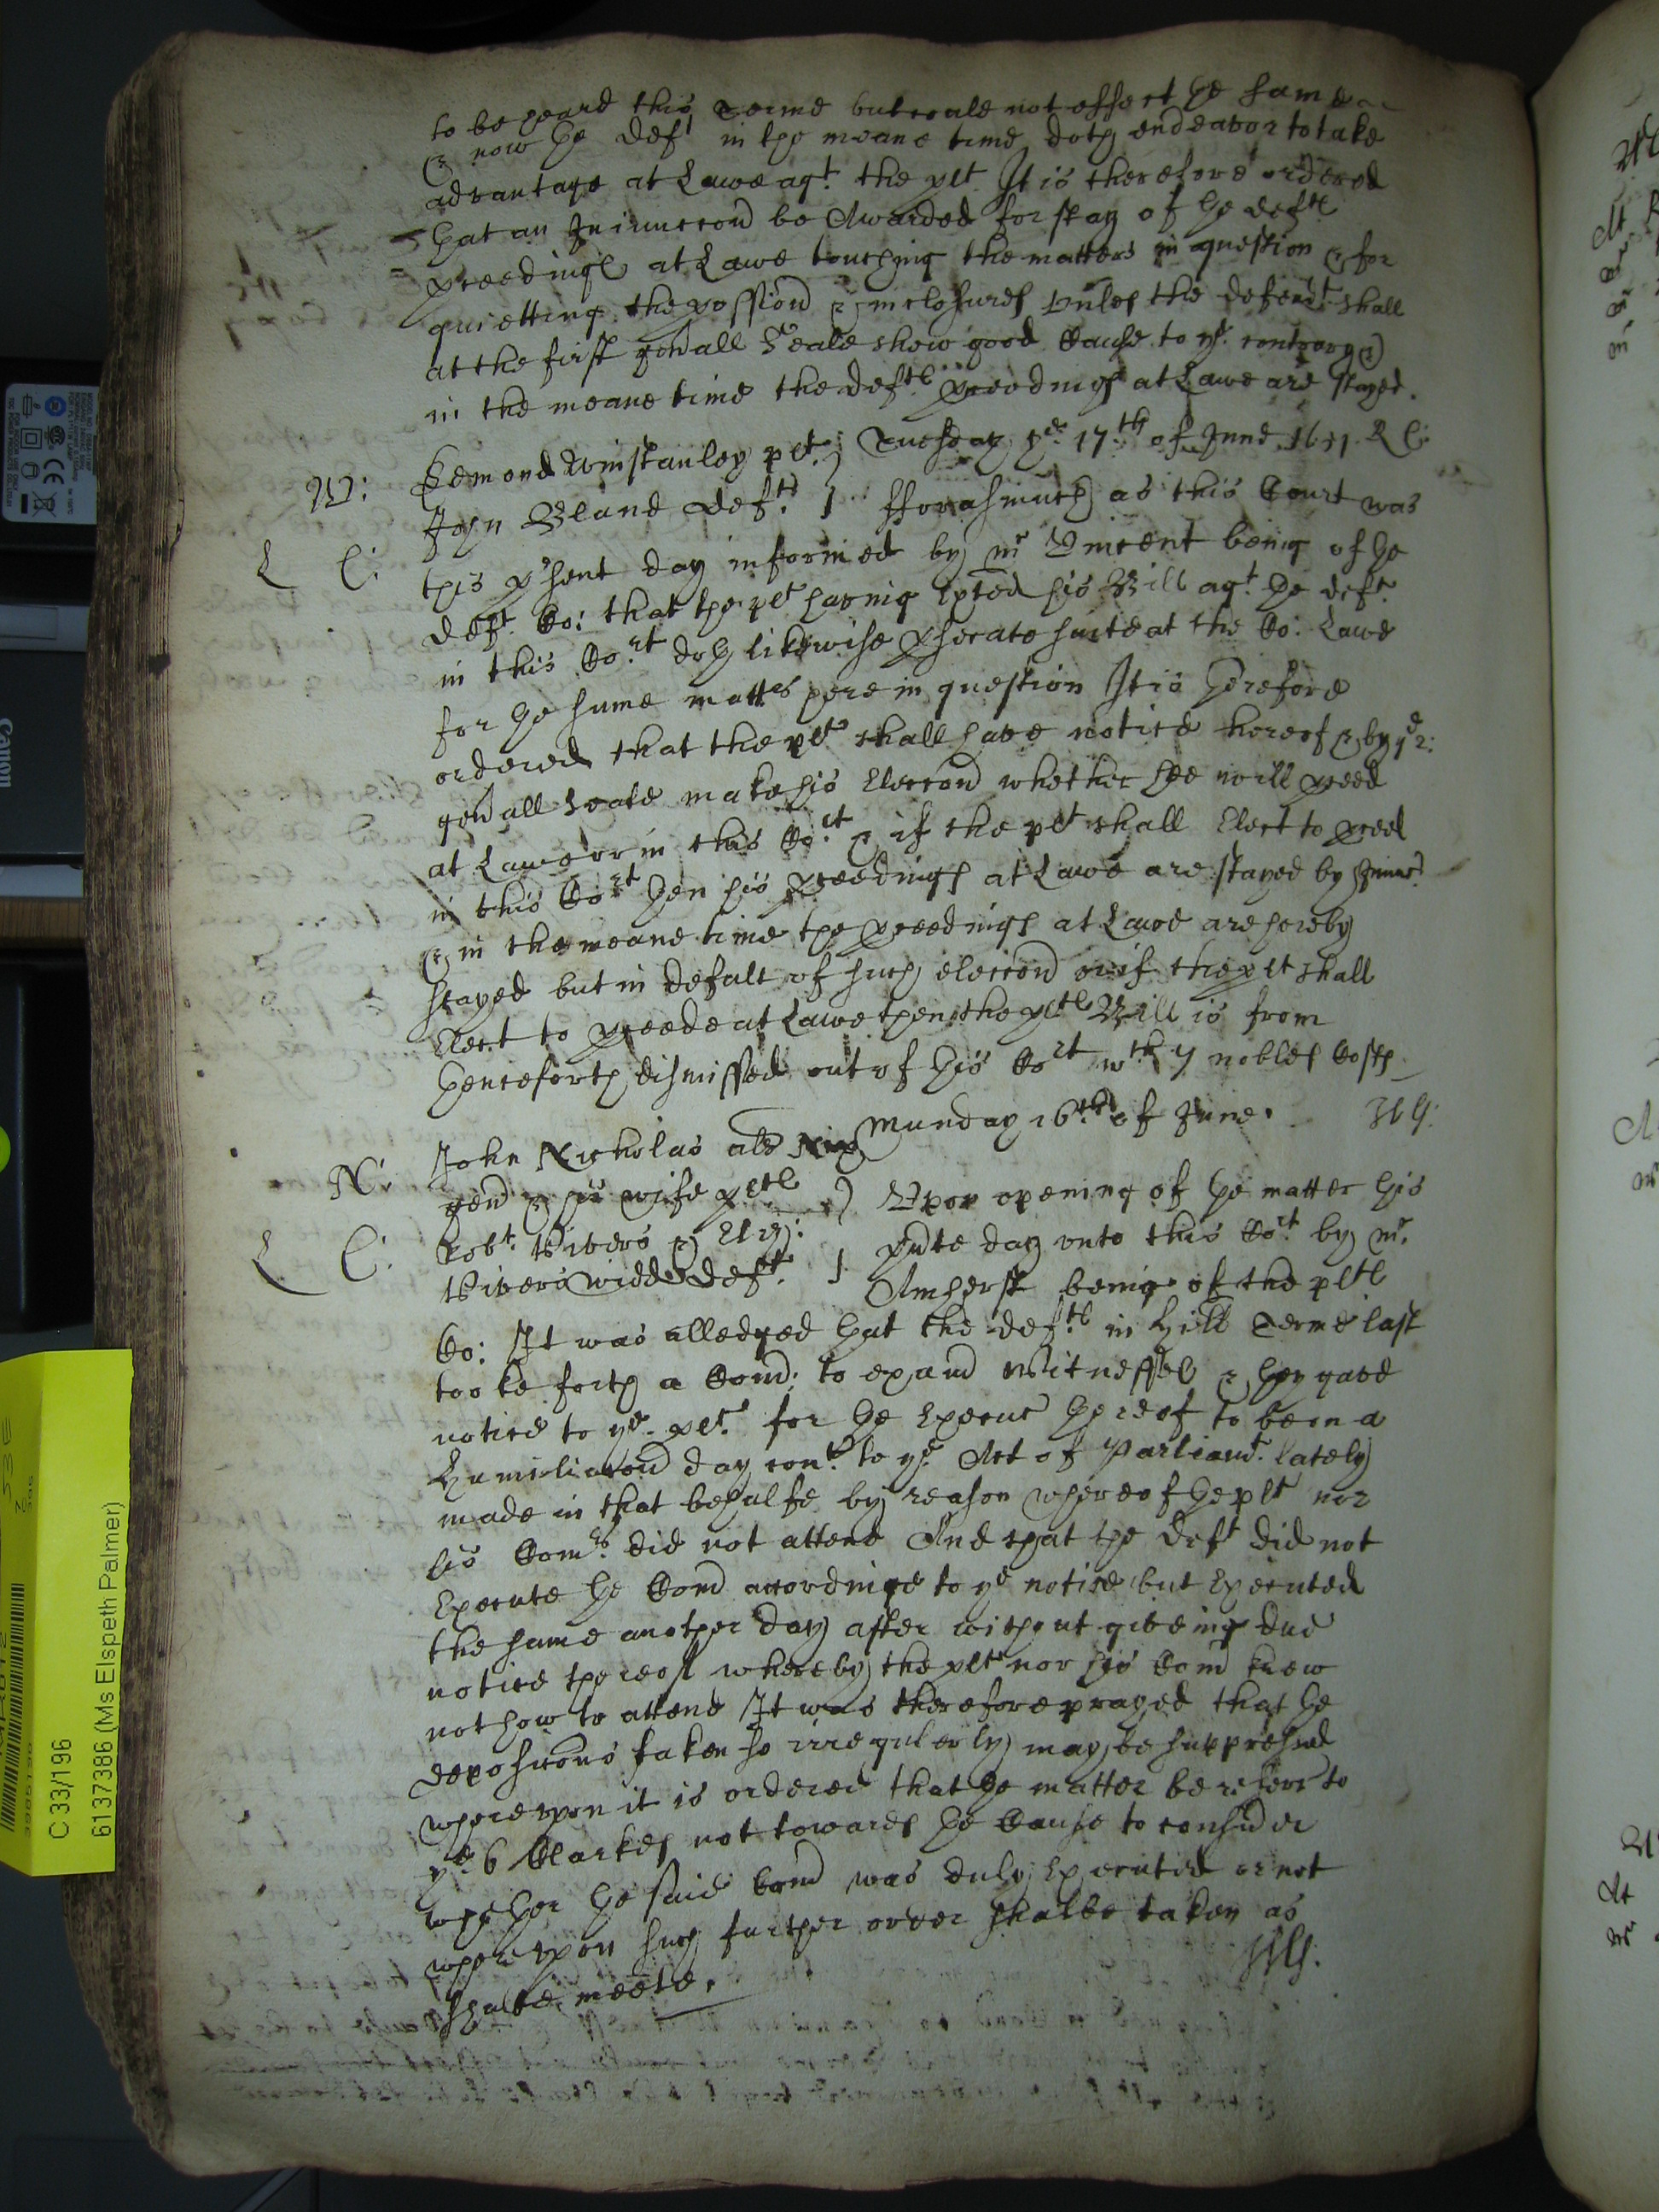 to be heard this Terme but coule not effect the same
& now the deft in the meane time doth endeavor to take
advantage at Lawe agt. the plt It is therefore ordered
that an Iniunccon be Awarded for stay of the deftes
pceedinges at Lawe touching the matters in question & for
quietting the possion & inclosures unles the defendt shall
at the first genall Seale shew good Cause to ye. contrary &
in the meane time the deftes pceedings at Lawe are stayed.
W:
Edmond Winstanley plt. Tuesday ye. 17th of June 1651 R C:
John Bland Deft. fforasmuch as this Court was
L C:
this psent day informed by mr Vincent being of the
deft. Co: that the plt having Exted his Bill agt. the deft.
in this Cort doth likewise psecute suite at the Co: Lawe
for the same matters here in question It is therefore
ordered that the plt shall have notice hereof & by ye 2:
genall Seale make his Eleccon whether hee will pceed
at Lawe or in this Cort & if the plt shall Elect to pceed
in this Cort then his pceedings at Lawe are stayed by Iniunc
& in the meane time the pceedings at Lawe are hereby
stayed but in defalt of such eleccon or if the plt shall
Elect to pceede at Lawe then the pltes Bill is from
henceforth dismissed out of this Cort wth 7 nobles Costs
John Nicholas als Munday 16th of June.
N:
gen & his wife pltes Upon opening of the matter this
L C:
Robt. Vivers & Eliz: pnte day unto this Cort by mr.
Vivers widd deft. Amherst being of the pltes
Co: It was alledged that the deftes in Hill Terme last
tooke forth a Comd: to exam Witnesses & they gave
notice to ye. plt. for the Execuc thereof to be on a
Humiliacon day cont. to ye. Act of Parliamt. lately
made in that behalfe by reason whereof the plt nor
his Comrs. did not attend And that the deft did not
Execute the Comd accordinge to ye notice but Executed
the same another day after without giveing due
notice thereof whereby the plt nor his Comd knew
not how to attend It was therefore prayed that the
deposicons taken so irregulerly may be suppressed
whereupon it is ordered that the matter be referr to
ye. 6 Clarkes not towards the Cause to consider
whether the said Comd was duly Executed or not
whereupon such further order shalbe taken as
shalbe meete.
C 33/196
6137386 (Ms Elspeth Palmer)
Canon